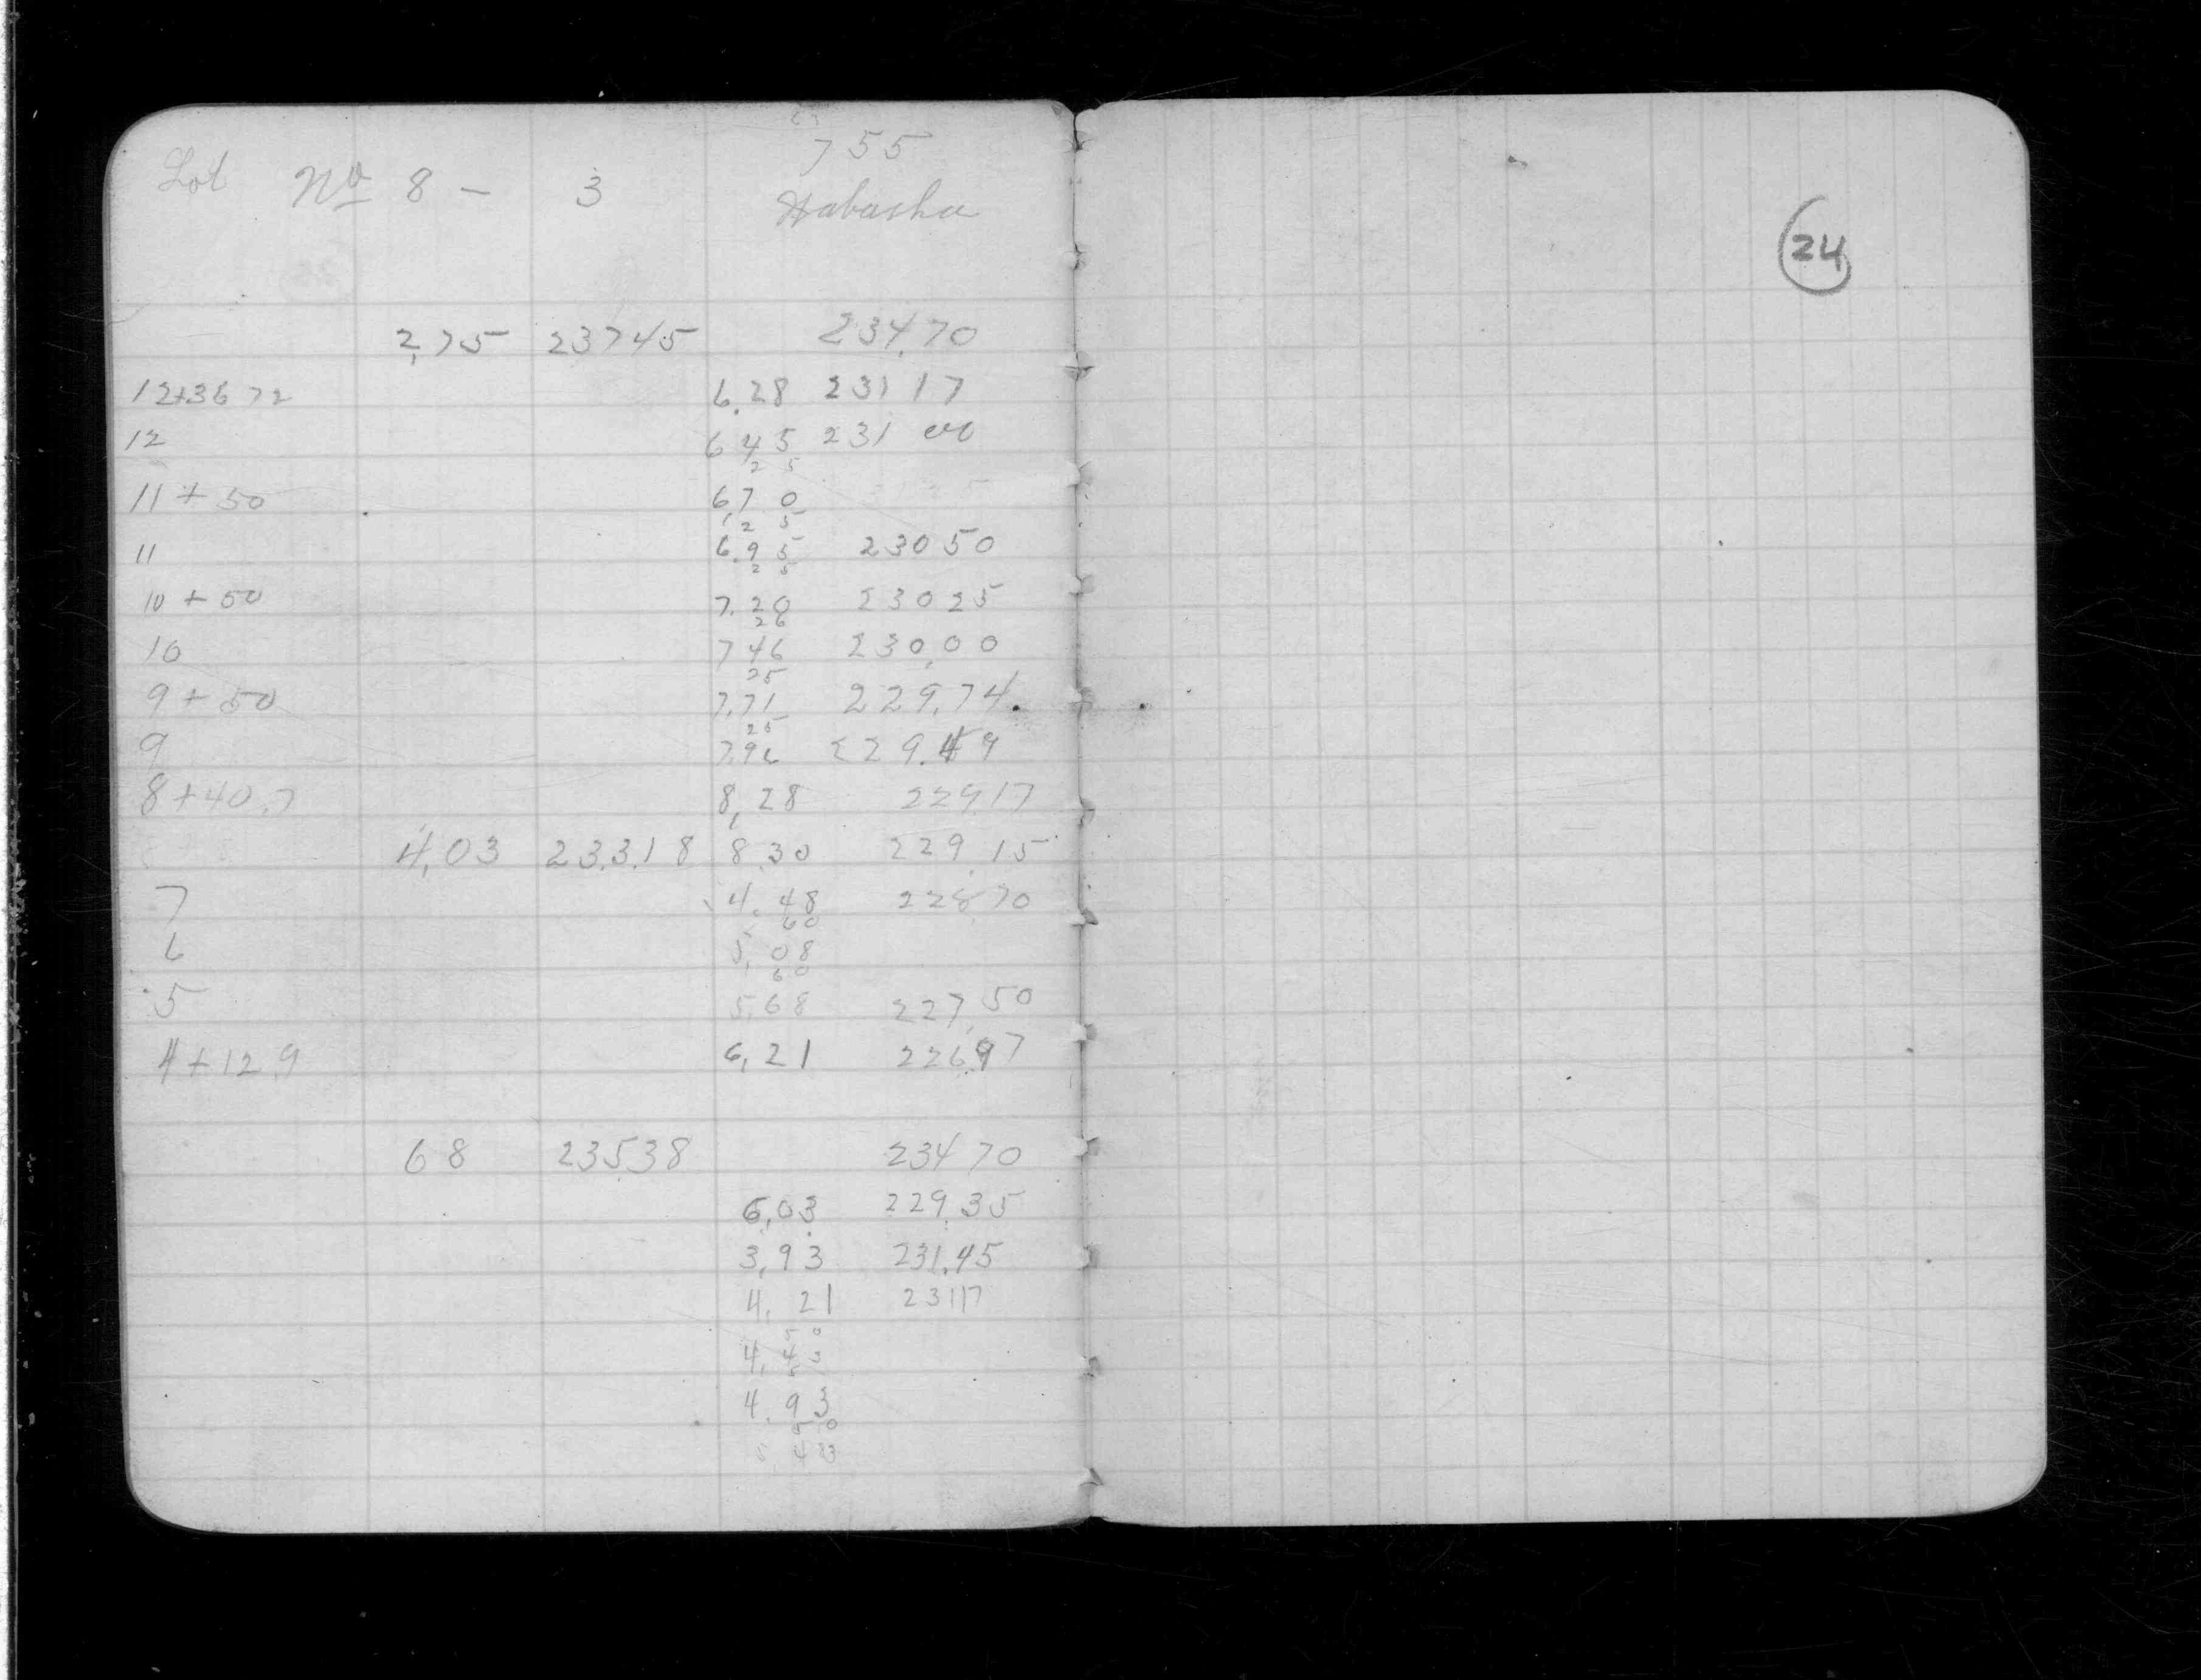 755
Lot No 8 - 3 Wabasha
2,75 23745 234,70
12+3672 6.28 231 17
12 6 45 231 00
2 5
11 + 50 6,7 0
2 5
11 6.95 230 50
2 5
10 + 50 7.20 230 25
26
10 7 46 230,00
25
9 + 50 7,71 229,74.
25
9 7,96 229.49
8+40.7 8,28 229,17
4,03 233.18 8 30 229.15
7 4. 48 228,70
60
6 5, 08
60
5 5,68 227,50
4+12.9 6,21 226.97
6 8 235.38 234 70
6,03 229.35
3,93 231.45
4. 21 23117
5 0
4, 43
5
4. 93
5 0
5 43
24